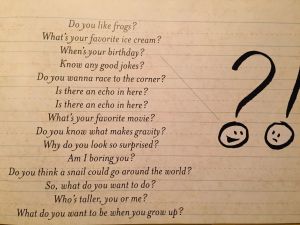 Do you like frogs?
What's your favorite ice cream?
When's your birthday?
Know any good jokes?
Do you wanna race to the corner?
Is there an echo in here?
Is there an echo in here?
What's your favorite movie?
Do you know what makes gravity?
Why do you look so surprised?
Am I boring you?
Do you think a snail could go around the world?
So, what do you want to do?
Who's taller, you or me?
What do you want to be when you grow up?
?!